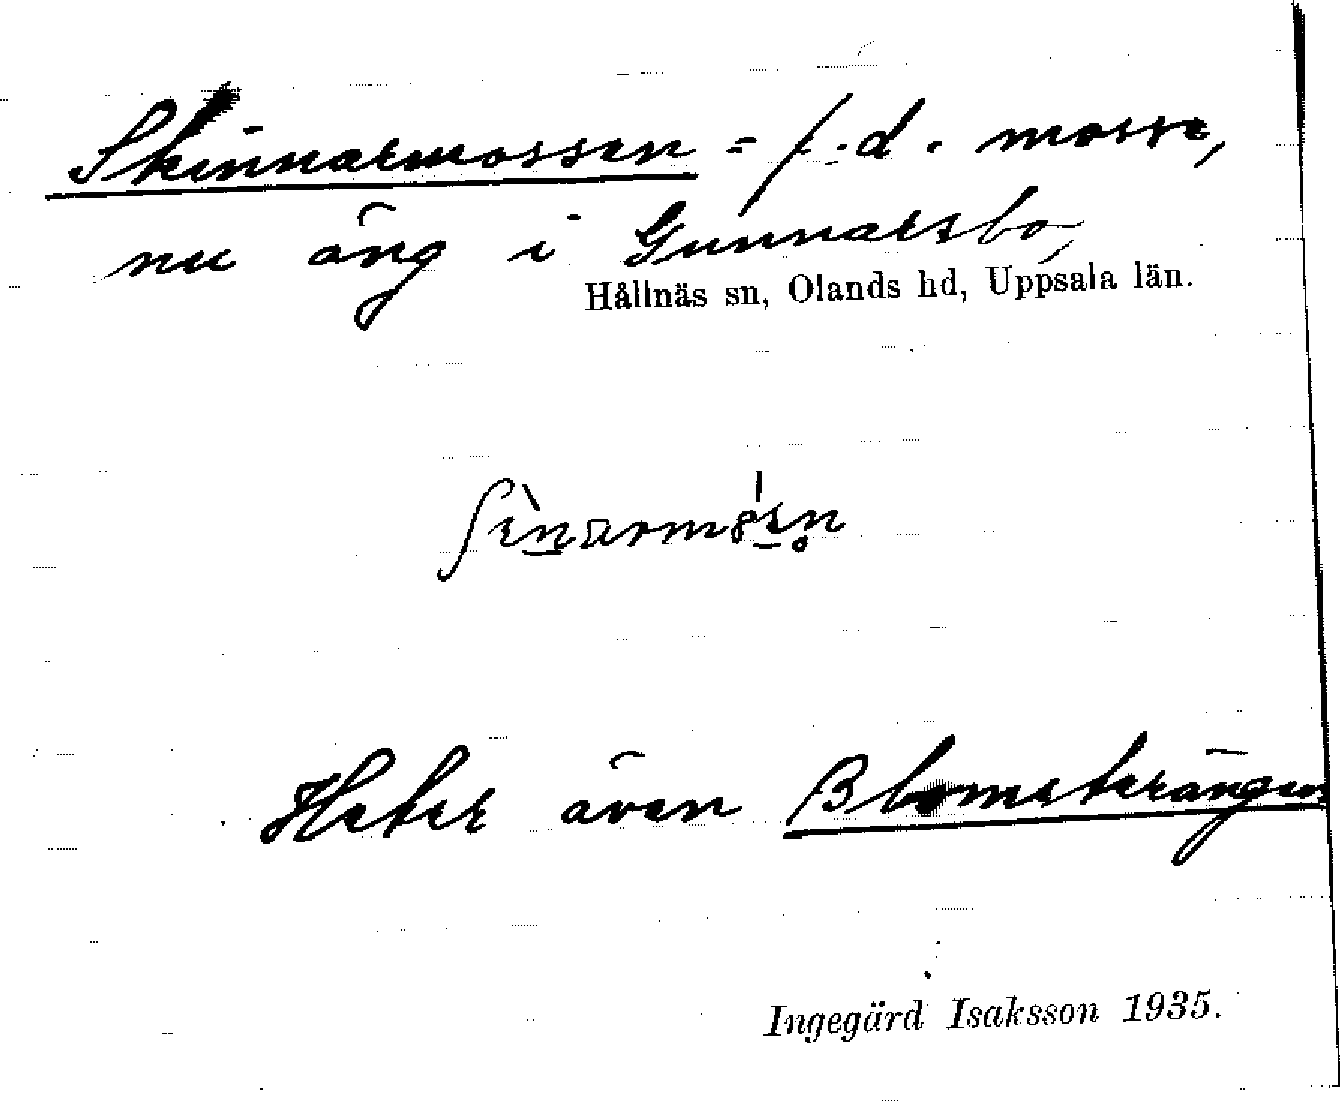 Skinnarmossen = f.d. mosse,
nu äng i Gunnarsbo,
Hållnäs sn, Olands hd, Uppsala län.
Heter även Blomsterängen
Ingegärd Isaksson 1935.